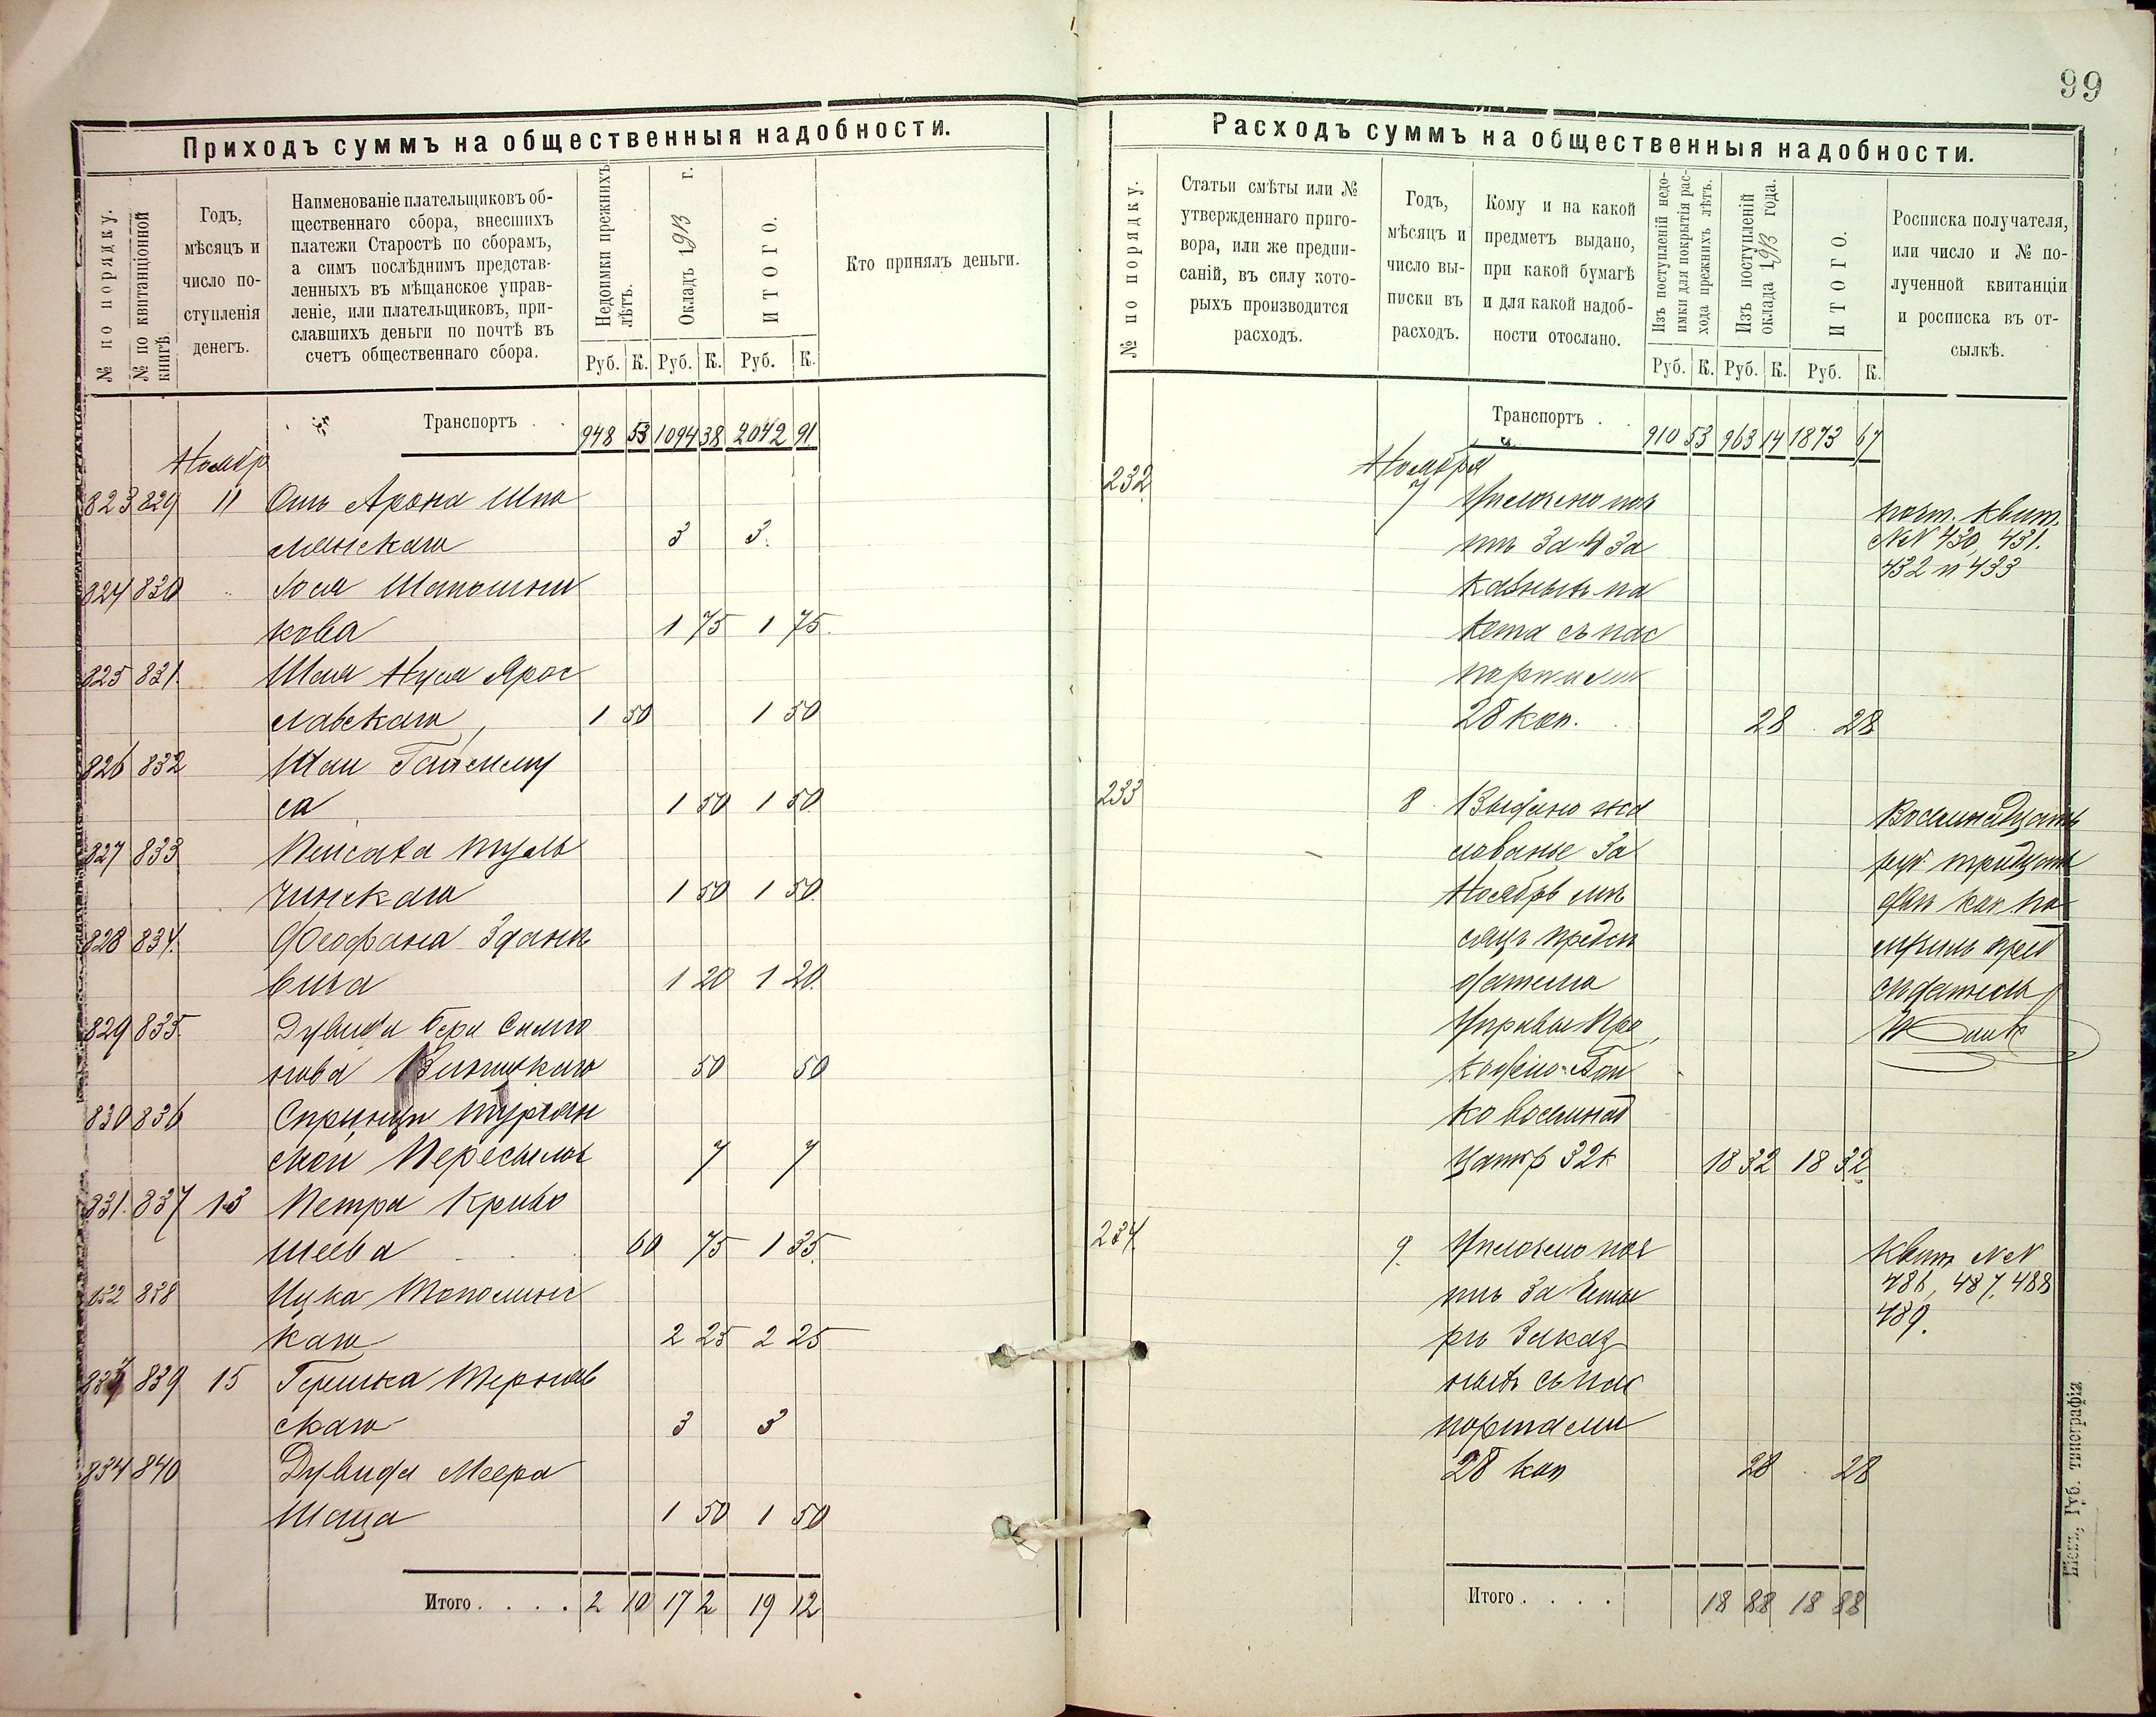 99
Приходъ суммъ на общественныя надобности.
№ по порядку.
№ по квитанціонной книгѣ
Годъ,
мѣсяцъ и
число по-
ступленія
денегъ.
Наименованіе плательщиковъ об-
щественнаго сбора, внесшихъ
платежи Старостѣ по сборамъ,
а симъ послѣднимъ представ-
ленныхъ въ мѣщанское управ-
леніе, или плательщиковъ, при-
славшихъ деньги по почтѣ въ
счетъ общественнаго сбора.
Недоимки прежнихъ
лѣтъ.
Окладъ 1913 г.
ИТОГО.
Кто принялъ деньги.
Руб. К. Руб. К. Руб. К.
Транспортъ . . 948 53 1094 38 2042 91
Ноябр
823 829 11 Отъ Арона Шпо
лянскаго 3 3.
824 830 Іося Шапошни
кова 1 75 1 75.
825 831. Шая Нуся Ярос
лавскаго 1 50 1 50
826 832
са 1 50 1 50
827 833 Пейсаха Туль
чинскаго 1 50 1 50.
828 834. Феофана Здане
вича 1 20 1 20.
829 835. Дувида Бера Симо
нова 50 50
830 836 Спринцы Турган
ской Пересылоч 7 7
831. 837 13 Петра Криво
шеева 60 75 1 35.
832 838 Ицка Тополинс
каго 2 25 2 25
833 839 15 Гершка Тернов
скаго 3 3
834 840 Дувида Меера
Шаца 1 50 1 50
Итого . . . . 2 10 17 2 19 12
Расходъ суммъ на общественныя надобности.
№ по порядку.
Статьи смѣты или №
утвержденнаго приго-
вора, или же предпи-
саній, въ силу кото-
рыхъ производится
расходъ.
Годъ,
мѣсяцъ и
число вы-
писки въ
расходъ.
Кому и на какой
предметъ выдано,
при какой бумагѣ
и для какой надоб-
ности отослано.
Изъ поступленій недо-
имки для покрытія рас-
хода прежнихъ лѣтъ.
Изъ поступленій
оклада 1913 года.
ИТОГО.
Росписка получателя,
или число и № по-
лученной квитанціи
и росписка въ от-
сылкѣ.
Руб. К. Руб. К. Руб. К.
Транспортъ . . 910 53 963 14 1873 67
Ноября
232 7 Уплочено поч
почт. квит.
тѣ за 4 за
NN 430, 431.
432 и 433
казныхъ па
кета съ пас
портами
28 коп. 28 28
233 8 Выдано жа
Восемнадцать
лованье за
руб тридцать
Ноябрь мѣ
двѣ коп по
сяцъ предсѣ
лучилъ пред
дателю
сѣдатель
Управы Про
кофію
ко восемнад
цать р 32 к 18 32 18 32
234. 9. Уплочено поч
Квит NN
тѣ за четы
486, 487, 488
489.
ри заказ
ныхъ съ пас
портами
28 коп 28 28
Итого . . . . 18 88 18 88
Губ. типографія